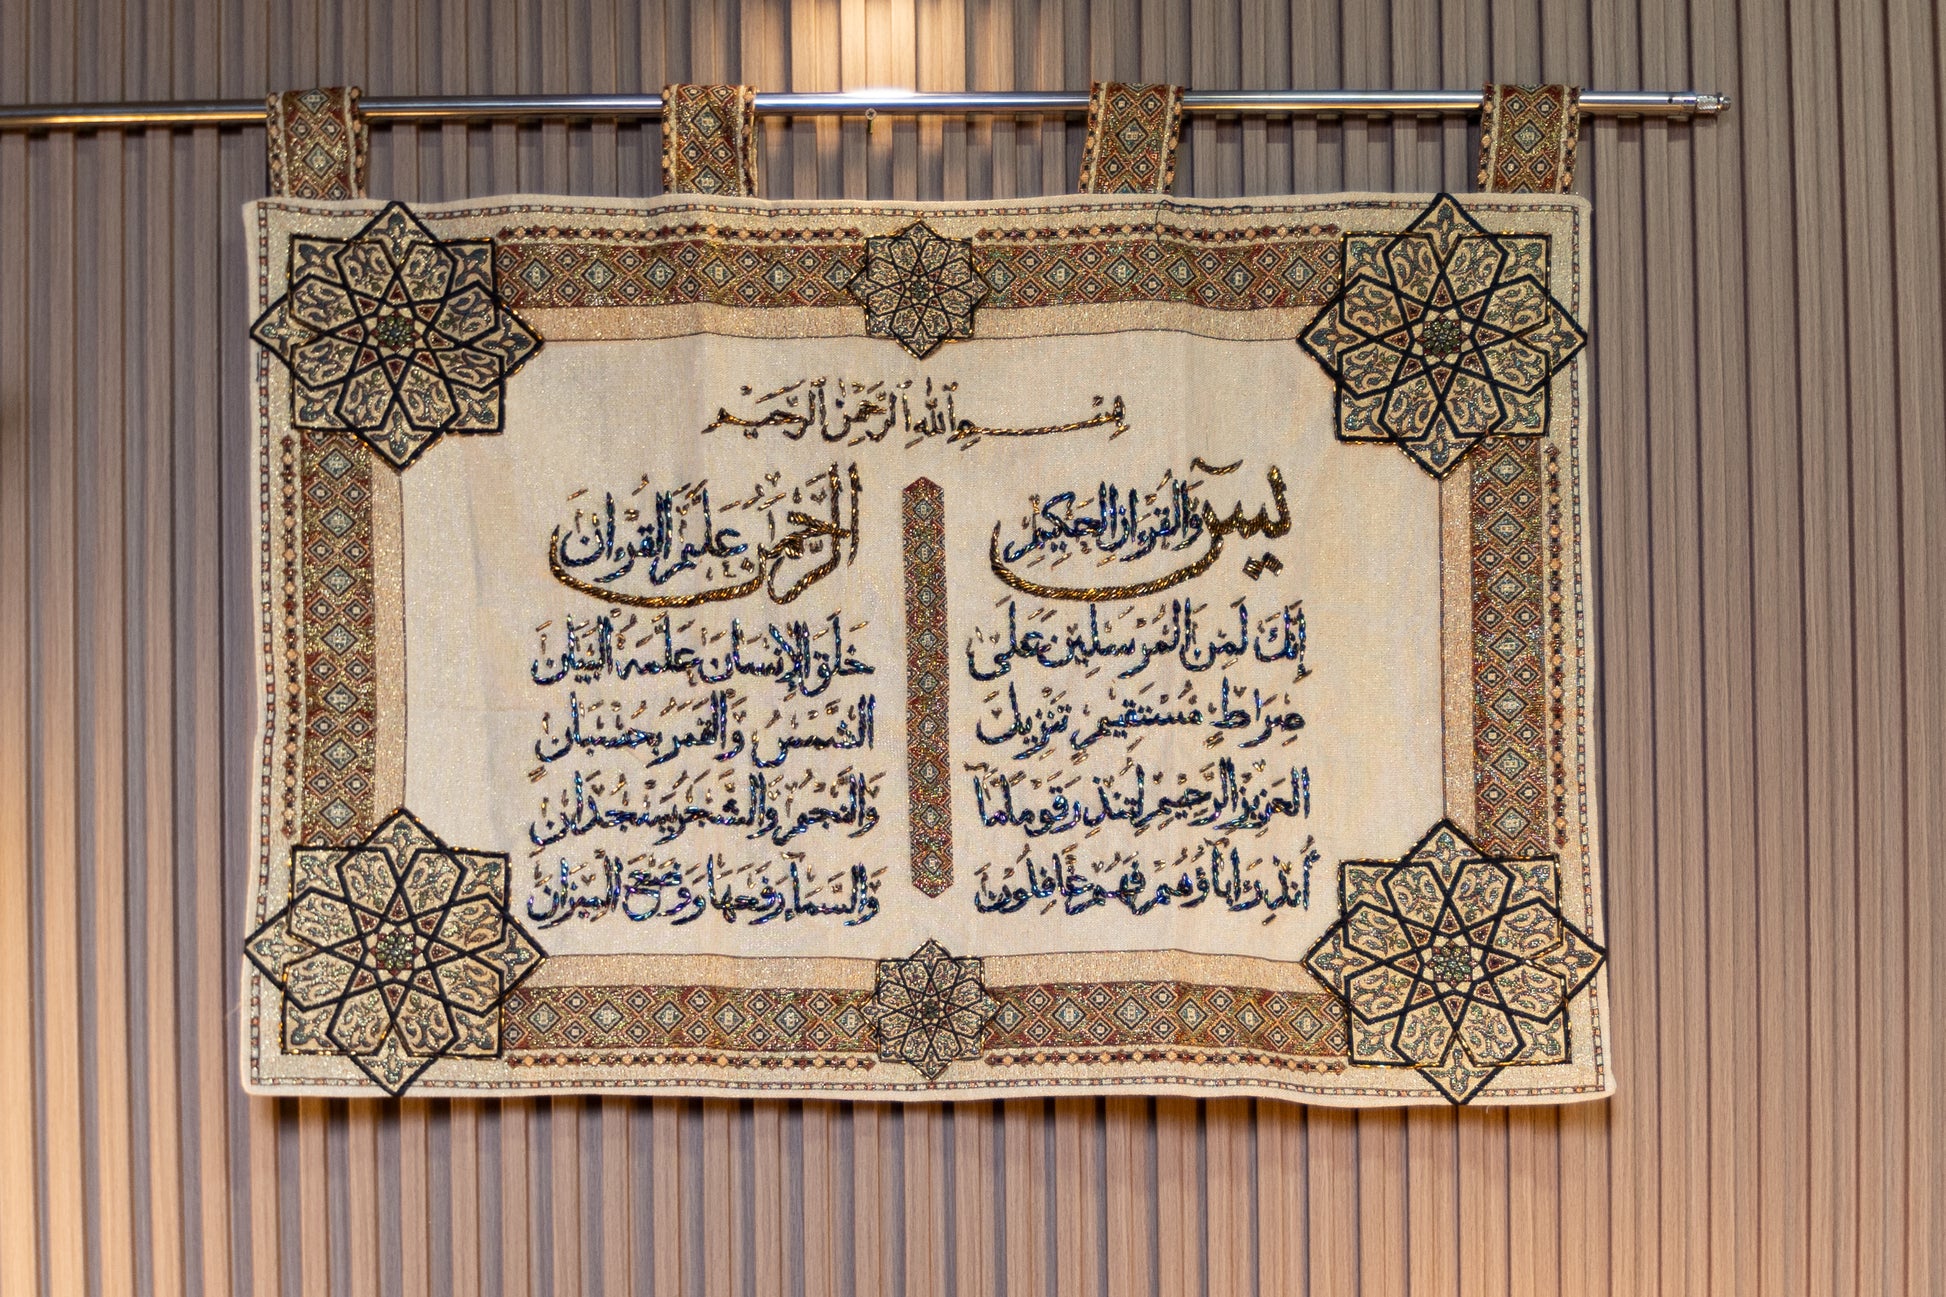 بِسْمِ ٱللَّهِ ٱلرَّحْمَٰنِ ٱلرَّحِيمِ
يسٓ وَالْقُرْءَانِ الْحَكِيمِ
إِنَّكَ لَمِنَ الْمُرْسَلِينَ عَلَىٰ
صِرَاطٍ مُسْتَقِيمٍ تَنْزِيلَ
الْعَزِيزِ الرَّحِيمِ لِتُنْذِرَ قَوْمًا مَا
أُنْذِرَ ءَابَاؤُهُمْ فَهُمْ غَافِلُونَ
الرَّحْمَٰنُ عَلَّمَ الْقُرْءَانَ
خَلَقَ الْإِنْسَانَ عَلَّمَهُ الْبَيَانَ
الشَّمْسُ وَالْقَمَرُ بِحُسْبَانٍ
وَالنَّجْمُ وَالشَّجَرُ يَسْجُدَانِ
وَالسَّمَاءَ رَفَعَهَا وَوَضَعَ الْمِيزَانَ